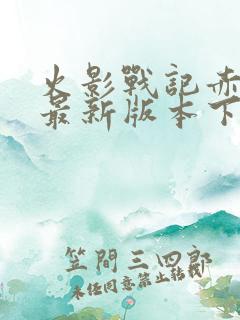 火影戰記赤
最新版本下
笠間三四郎
未経同意禁止転載